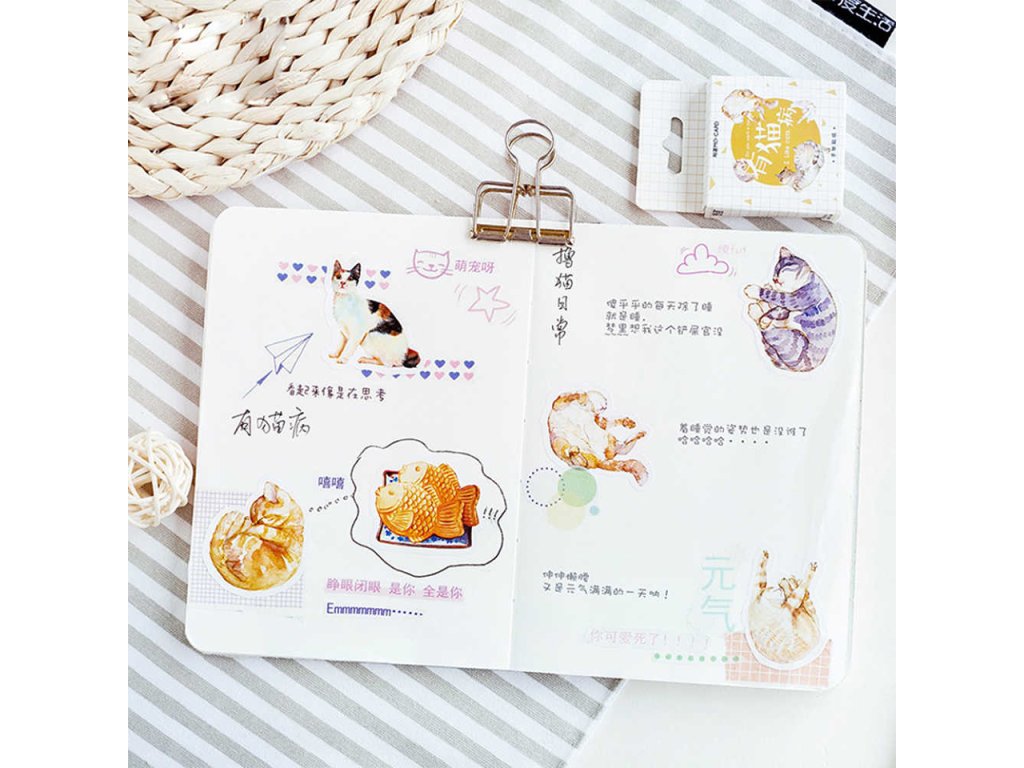 度生活
有猫病
I like cat
萌宠呀
看起来像是在思考
有猫病
嘻嘻
!!!
睁眼闭眼 是你 全是你
Emmmmmmm······
撸猫日常
傻乎乎的每天除了睡
就是睡.
梦里想我这个铲屎官没
着睡觉的姿势也是没谁了
哈哈哈哈····
伸伸懒腰
又是元气满满的一天哟!
元气
你可爱死了!!!!